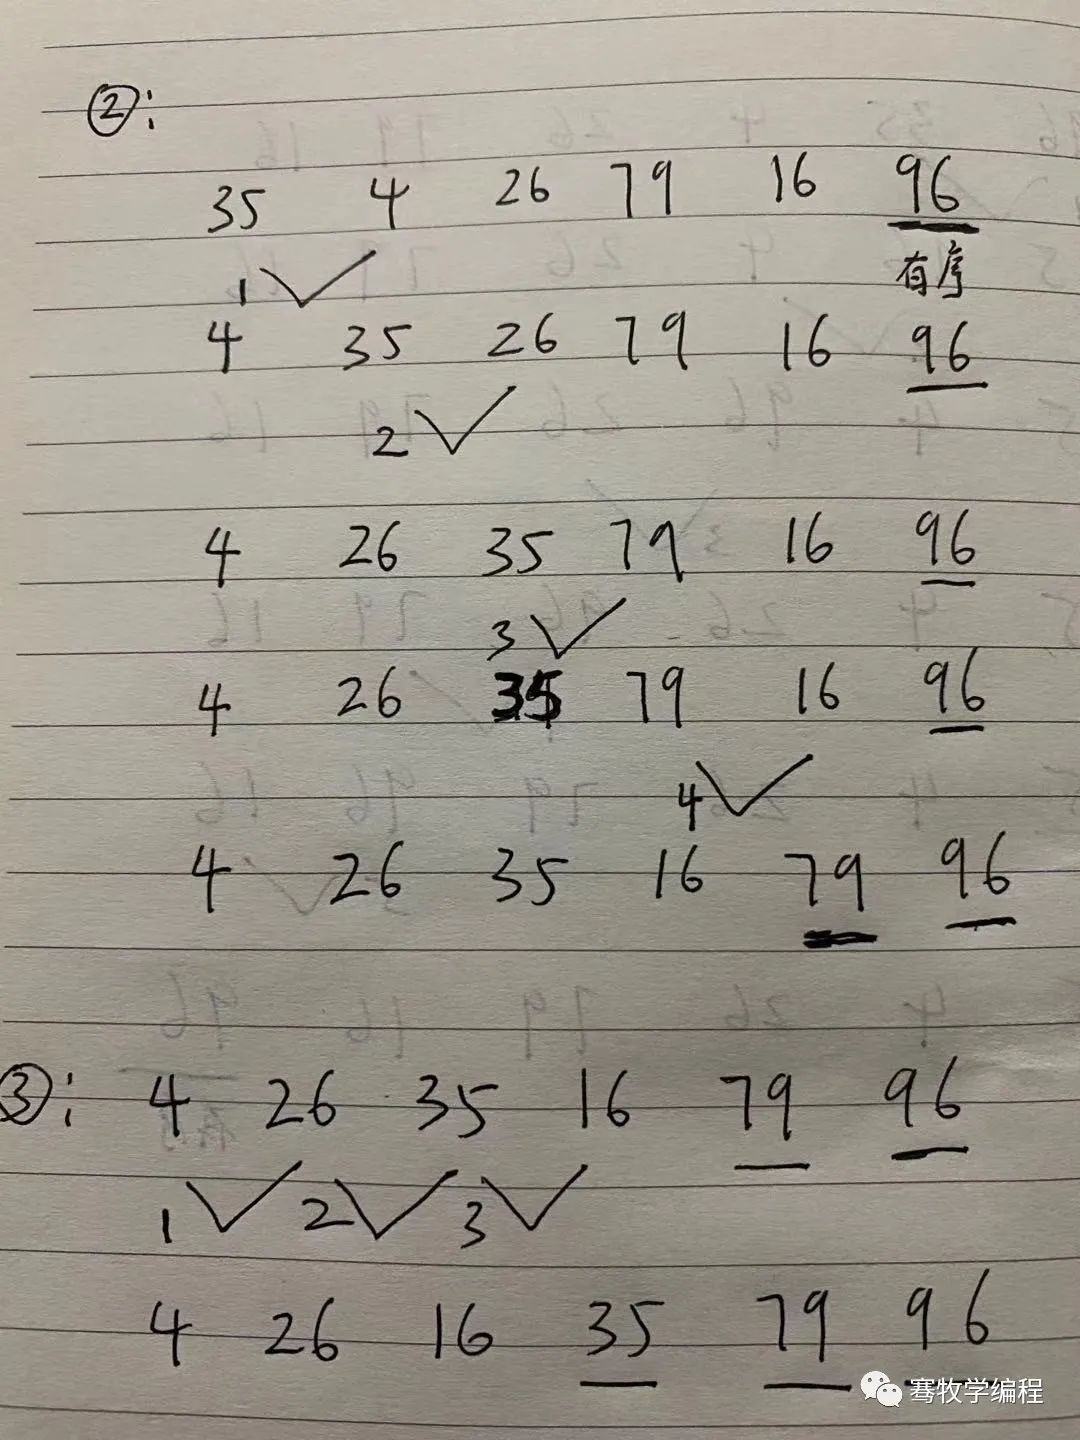 ②:
35 4 26 79 16 96
1
有序
4 35 26 79 16 96
2
4 26 35 79 16 96
3
4 26 35 79 16 96
4
4 26 35 16 79 96
③: 4 26 35 16 79 96
1 2 3
4 26 16 35 79 96
骞牧学编程